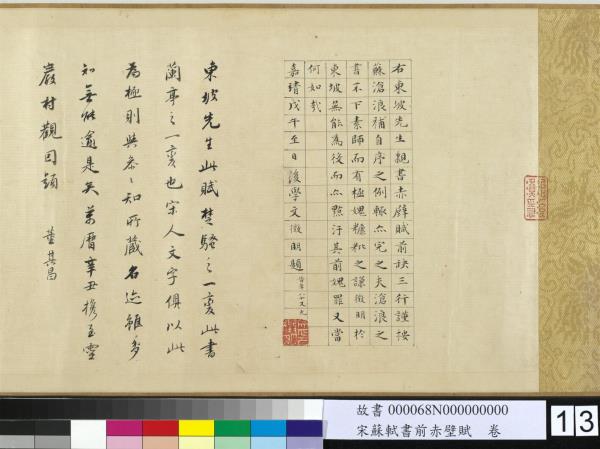 右東坡先生親書赤壁賦前缺三行謹按
蘇滄浪補自序之例輒亦完之夫滄浪之
書不下素師而有極愧糠粃之謙徵明於
東坡無能為役而亦點汙其前愧罪又當
何如哉
嘉靖戊午至日後學文徵明題 時年八十又九
東坡先生此賦楚騷之一變此書
蘭亭之一變也宋人文字俱以此
為極則與參參知所藏名迹雖多
知無能逾是矣萬曆辛丑攜至靈
巖村觀因題 董其昌
故書 000068N000000000
宋蘇軾書前赤壁賦 卷
13